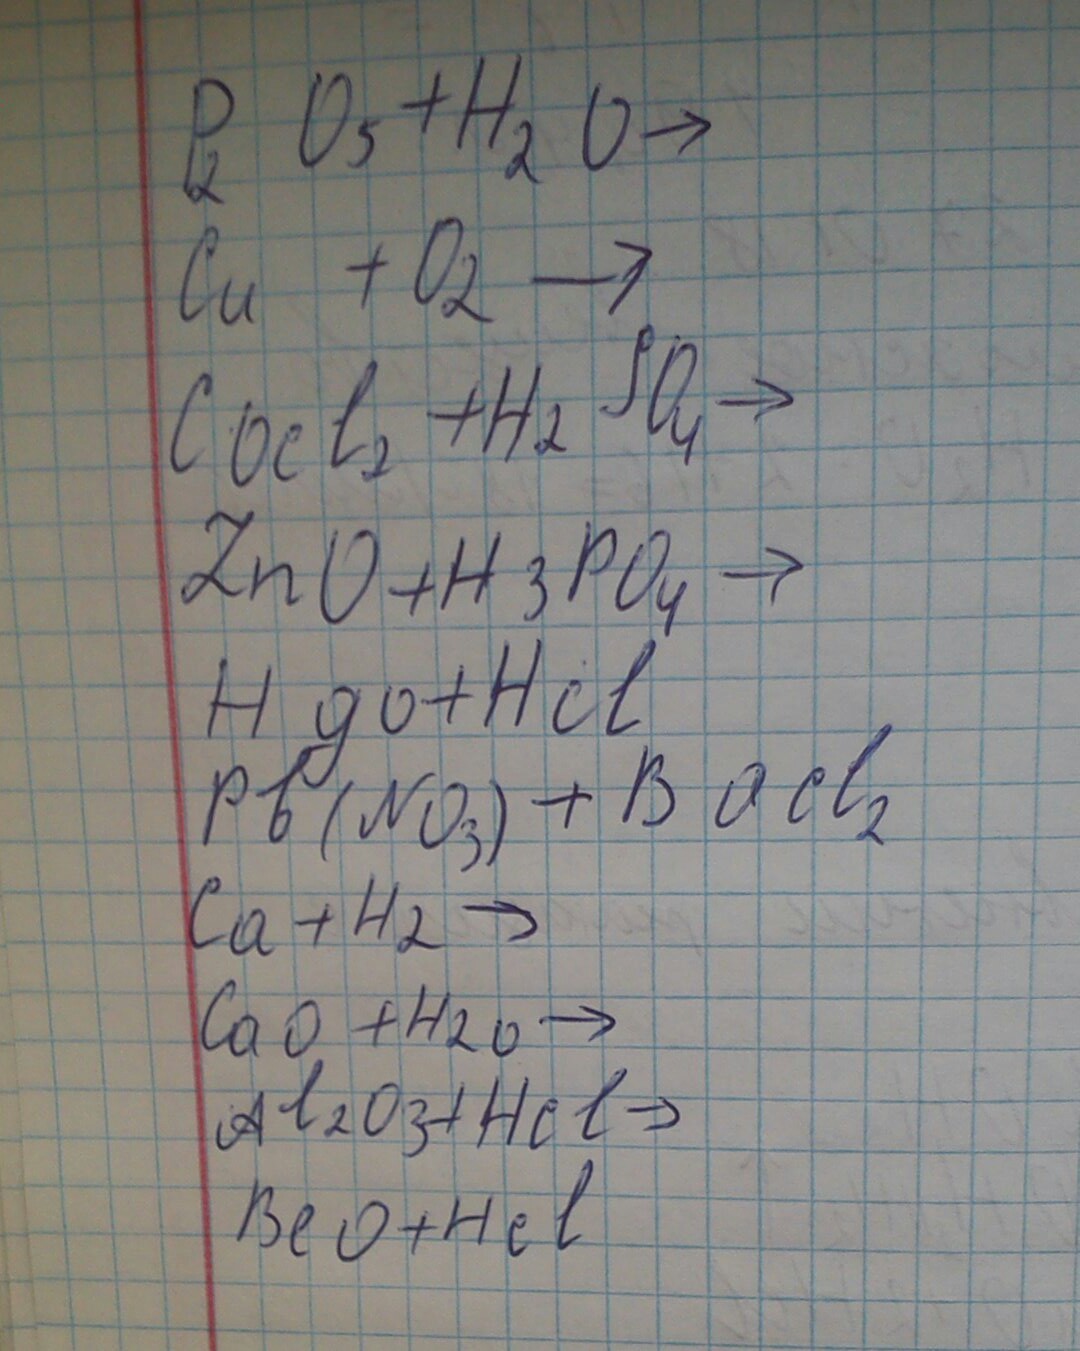 P₂O₅+H₂O→
Cu + O₂ →
COCl₂ +H₂SO₄→
ZnO+H3PO₄ →
Hgo+Hcl
Pb(NO₃) + Bacl₂
Ca+H₂ →
CaO +H₂o→
Al₂O₃+Hcl→
BeO+Hcl